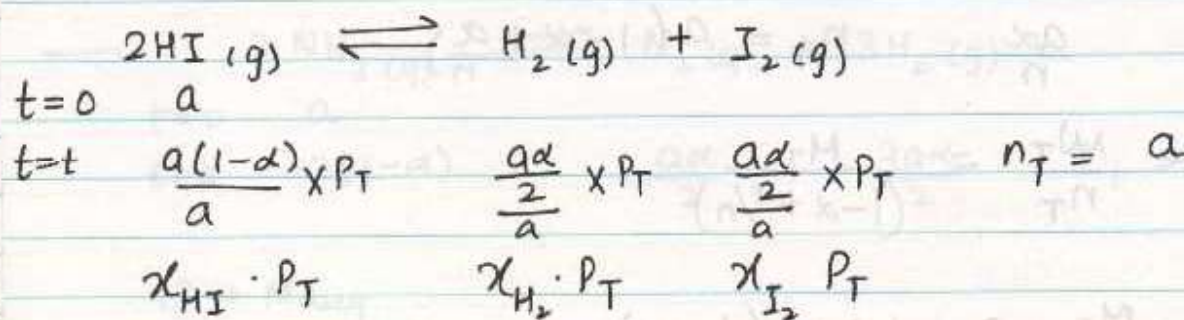 2HI (g) ⇌ H₂ (g) + I₂ (g)
t=0 a
t=t a(1-α)/a × P_T (aα/2)/a × P_T (aα/2)/a × P_T n_T = a
x_HI · P_T x_H₂ · P_T x_I₂ P_T